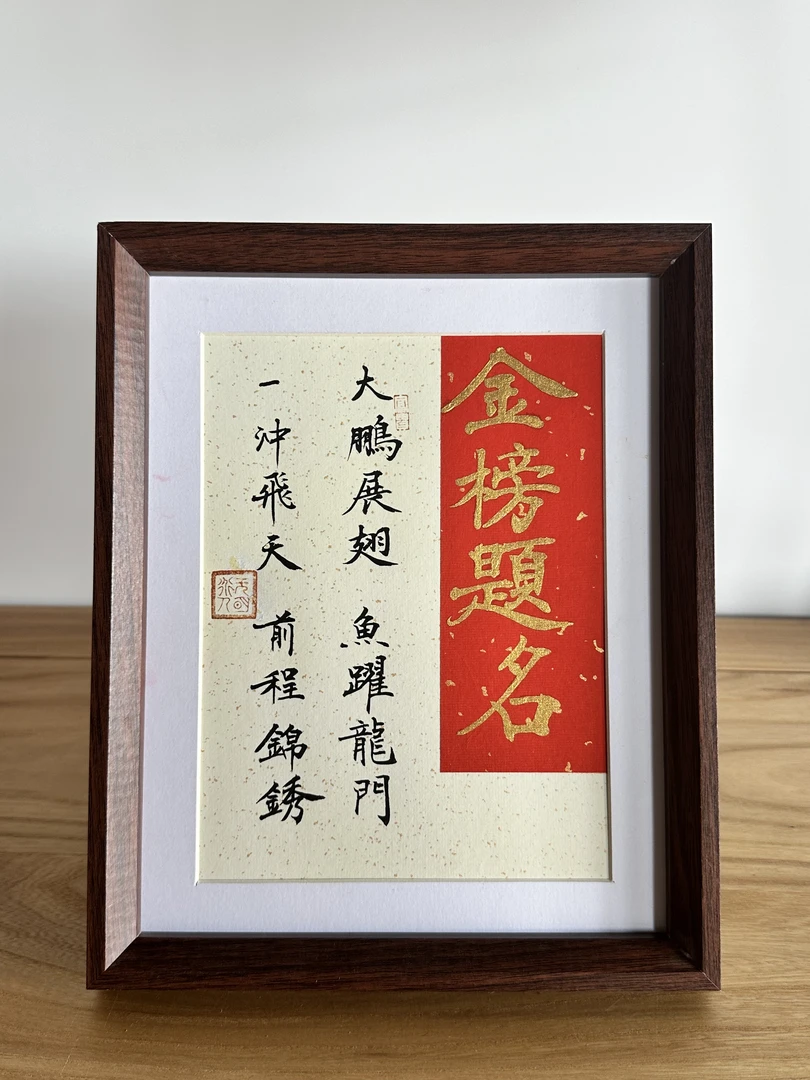 金榜題名
大鵬展翅 魚躍龍門
一沖飛天 前程錦銹